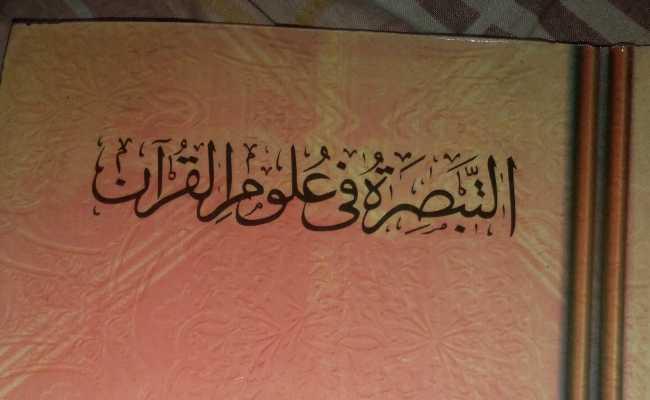 التَّبَصِرَةُ فِى عُلُومِ الْقُرْآن